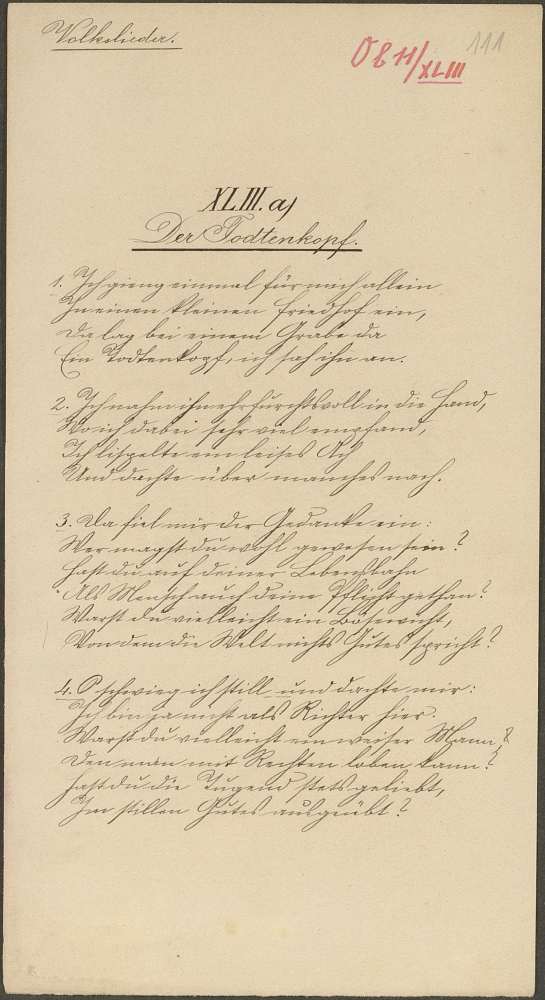 Volkslieder.
O ł 11/XLIII
111
XLIII. a)
Der Todtenkopf.
1. Ich gieng einmal für mich allein
In einen kleinen Friedhof ein,
Da lag bei einem Grabe da
Ein Todtenkopf, ich sah ihn an.
2. Ich nahm ihn ehrfurchtsvoll in die Hand,
Wo ich dabei sehr viel empfand,
Ich lispelte ein leises Ach
Und dachte über manches nach.
3. Da fiel mir der Gedanke ein:
Wer magst du wohl gewesen sein?
Hast du auf deiner Lebensbahn
Als Mensch auch deine Pflicht gethan?
Warst du vielleicht ein Bösewicht,
Von dem die Welt nichts Gutes spricht?
4. O schwieg ich still und dachte mir:
Ich bin ja nicht als Richter hier.
Warst du vielleicht ein weiser Mann,
Den man mit Rechten loben kann?
Hast du die Tugend stets geliebt,
Im stillen Gutes ausgeübt?